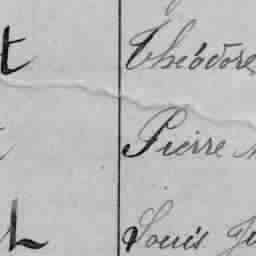 t Théodore
Pierre
Louis